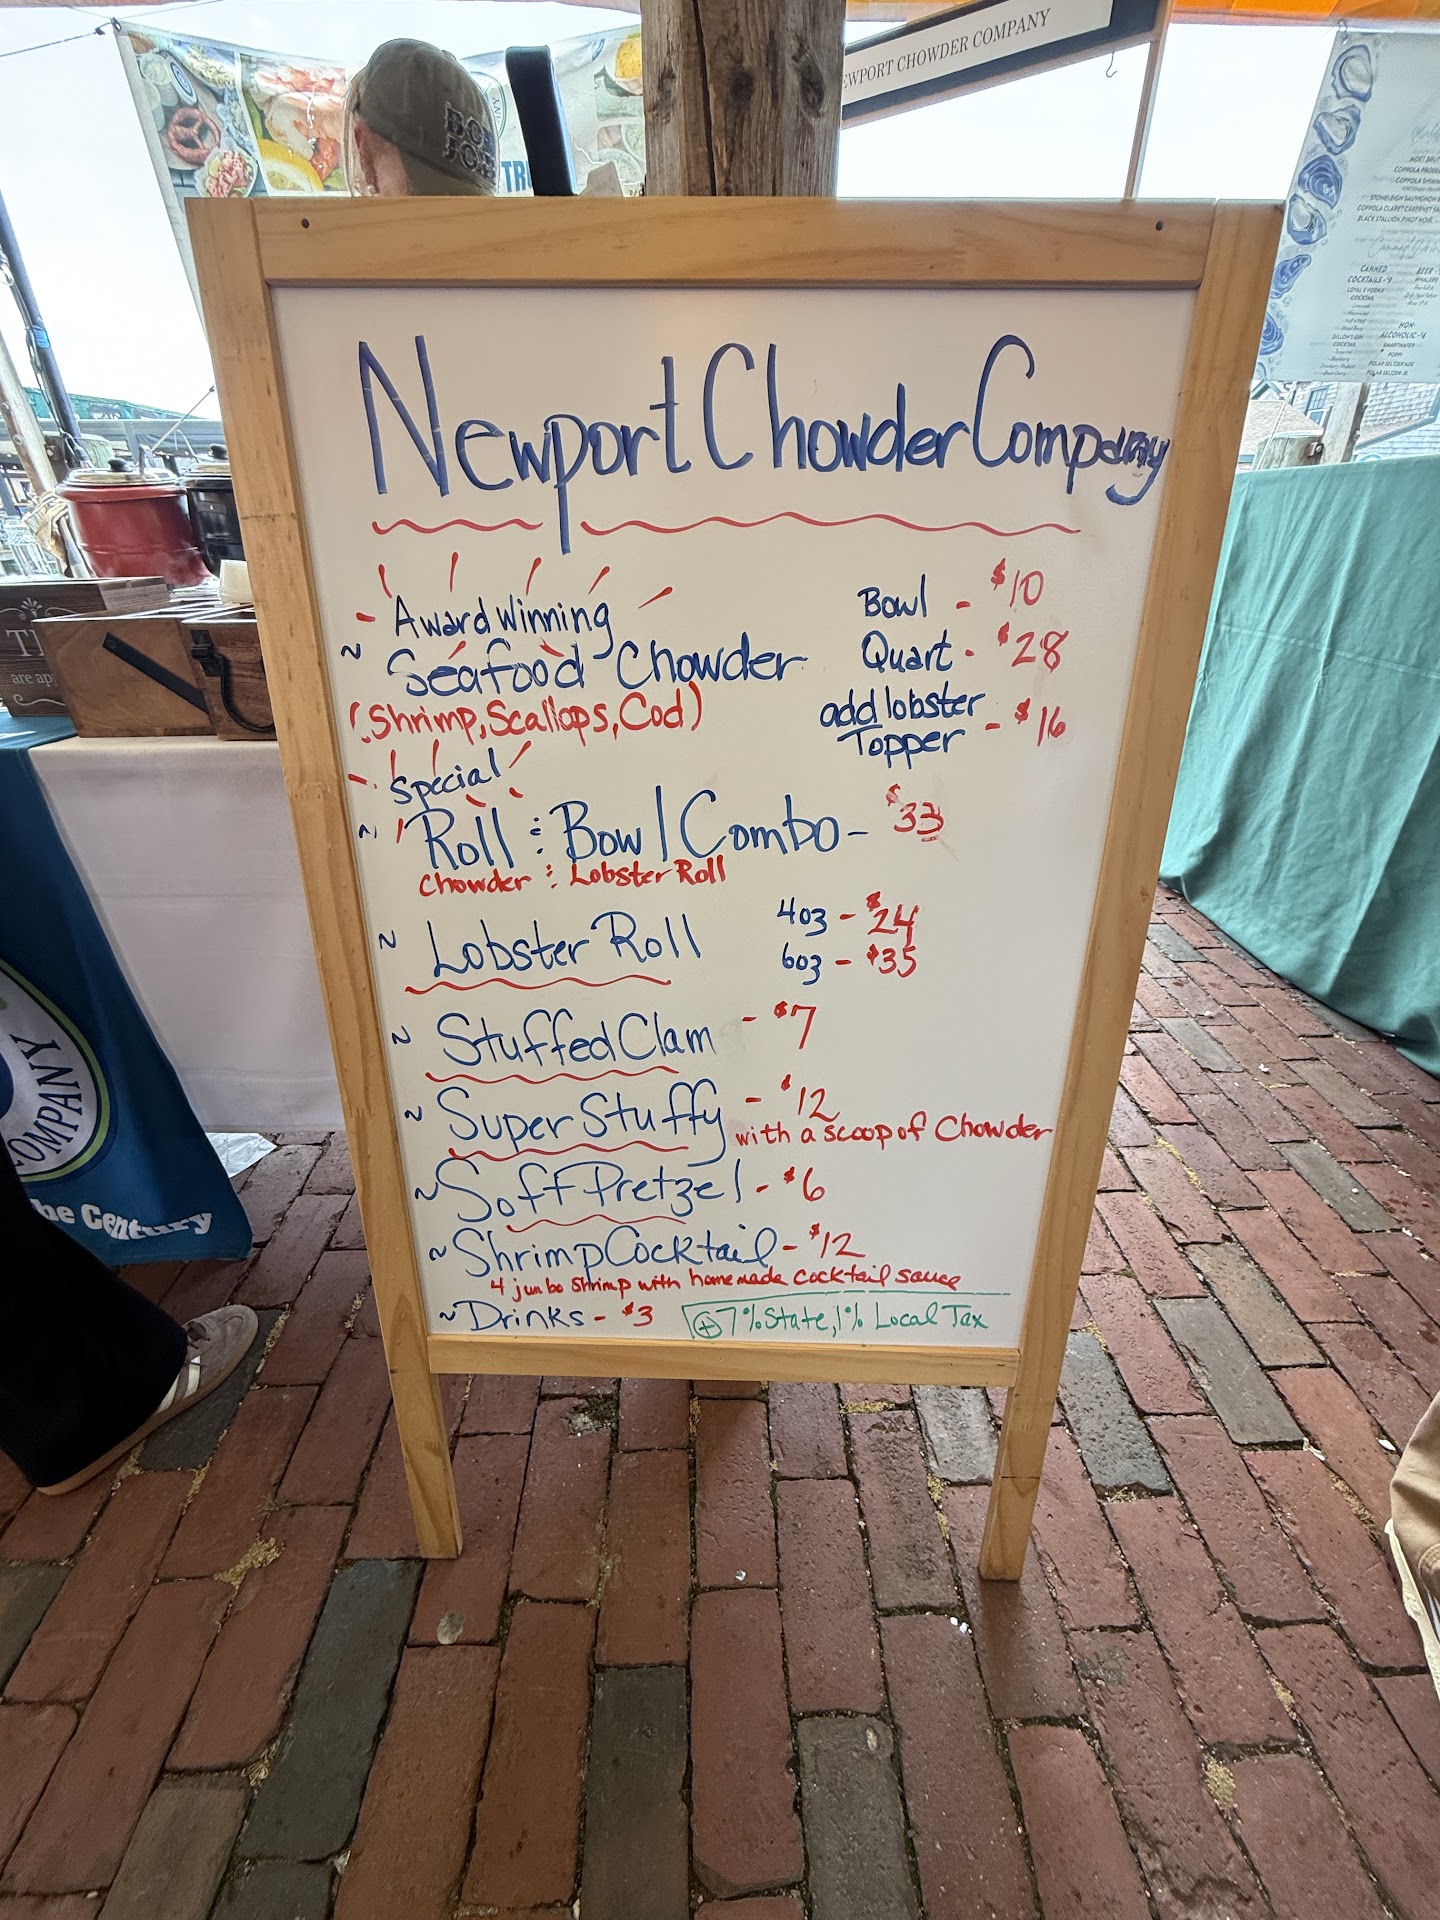 BOB
JOB
NEWPORT CHOWDER COMPANY
Newport Chowder Company
Award winning
~ Seafood Chowder
(Shrimp, Scallops, Cod)
Bowl - $10
Quart - $28
add lobster
Topper - $16
Special
~ Roll & Bowl Combo - $33
Chowder & Lobster Roll
~ Lobster Roll
4oz - $24
6oz - $35
~ Stuffed Clam - $7
~ Super Stuffy - $12
with a scoop of Chowder
~ Soft Pretzel - $6
~ Shrimp Cocktail - $12
4 jumbo Shrimp with homemade cocktail sauce
~ Drinks - $3
+ 7% State, 1% Local Tax
are ap
COMPANY
he Century
CANNED
COCKTAILS
BEER
NON-
ALCOHOLIC